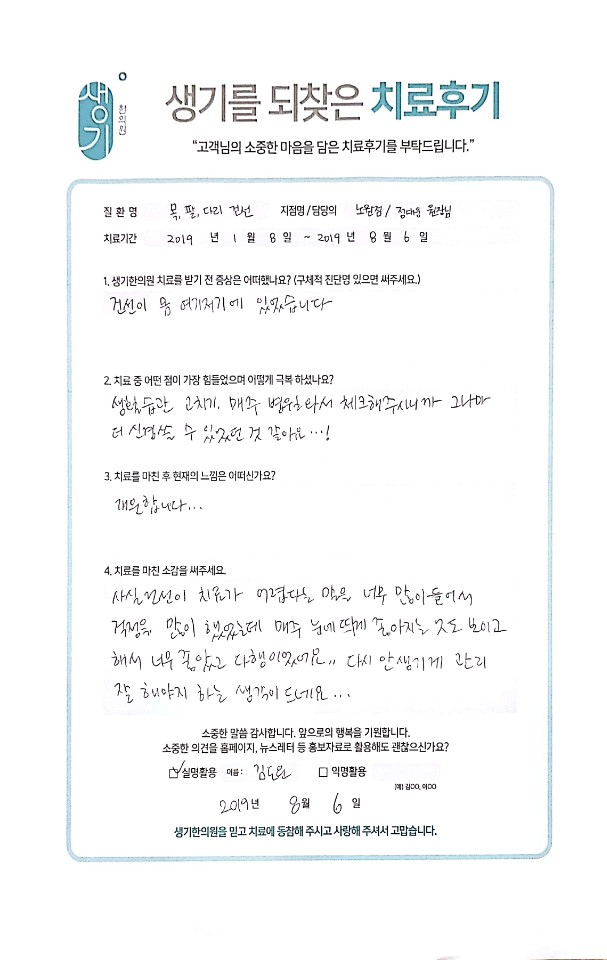 생기
한의원
생기를 되찾은 치료후기
"고객님의 소중한 마음을 담은 치료후기를 부탁드립니다."
질 환 명 목, 팔, 다리 건선 지점명 / 담당의 노원점 / 정대웅 원장님
치료기간 2019 년 1 월 8 일 ~ 2019 년 8 월 6 일
1. 생기한의원 치료를 받기 전 증상은 어떠했나요? (구체적 진단명 있으면 써주세요.)
건선이 몸 여기저기에 있었습니다
2. 치료 중 어떤 점이 가장 힘들었으며 어떻게 극복 하셨나요?
생활습관 고치기. 매주 병원와서 체크해주시니까 그나마
더 신경쓸 수 있었던 것 같아요...!
3. 치료를 마친 후 현재의 느낌은 어떠신가요?
개운합니다...
4. 치료를 마친 소감을 써주세요.
사실 건선이 치료가 어렵다는 말을 너무 많이 들어서
걱정을 많이 했었는데 매주 눈에 띄게 좋아지는 것도 보이고
해서 너무 좋았고 다행이었네요.. 다시 안생기게 관리
잘 해야지 하는 생각이 드네요...
소중한 말씀 감사합니다. 앞으로의 행복을 기원합니다.
소중한 의견을 홈페이지, 뉴스레터 등 홍보자료로 활용해도 괜찮으신가요?
실명활용 이름 : 김도완 익명활용
(예) 김OO, 이OO
2019년 8월 6 일
생기한의원을 믿고 치료에 동참해 주시고 사랑해 주셔서 고맙습니다.